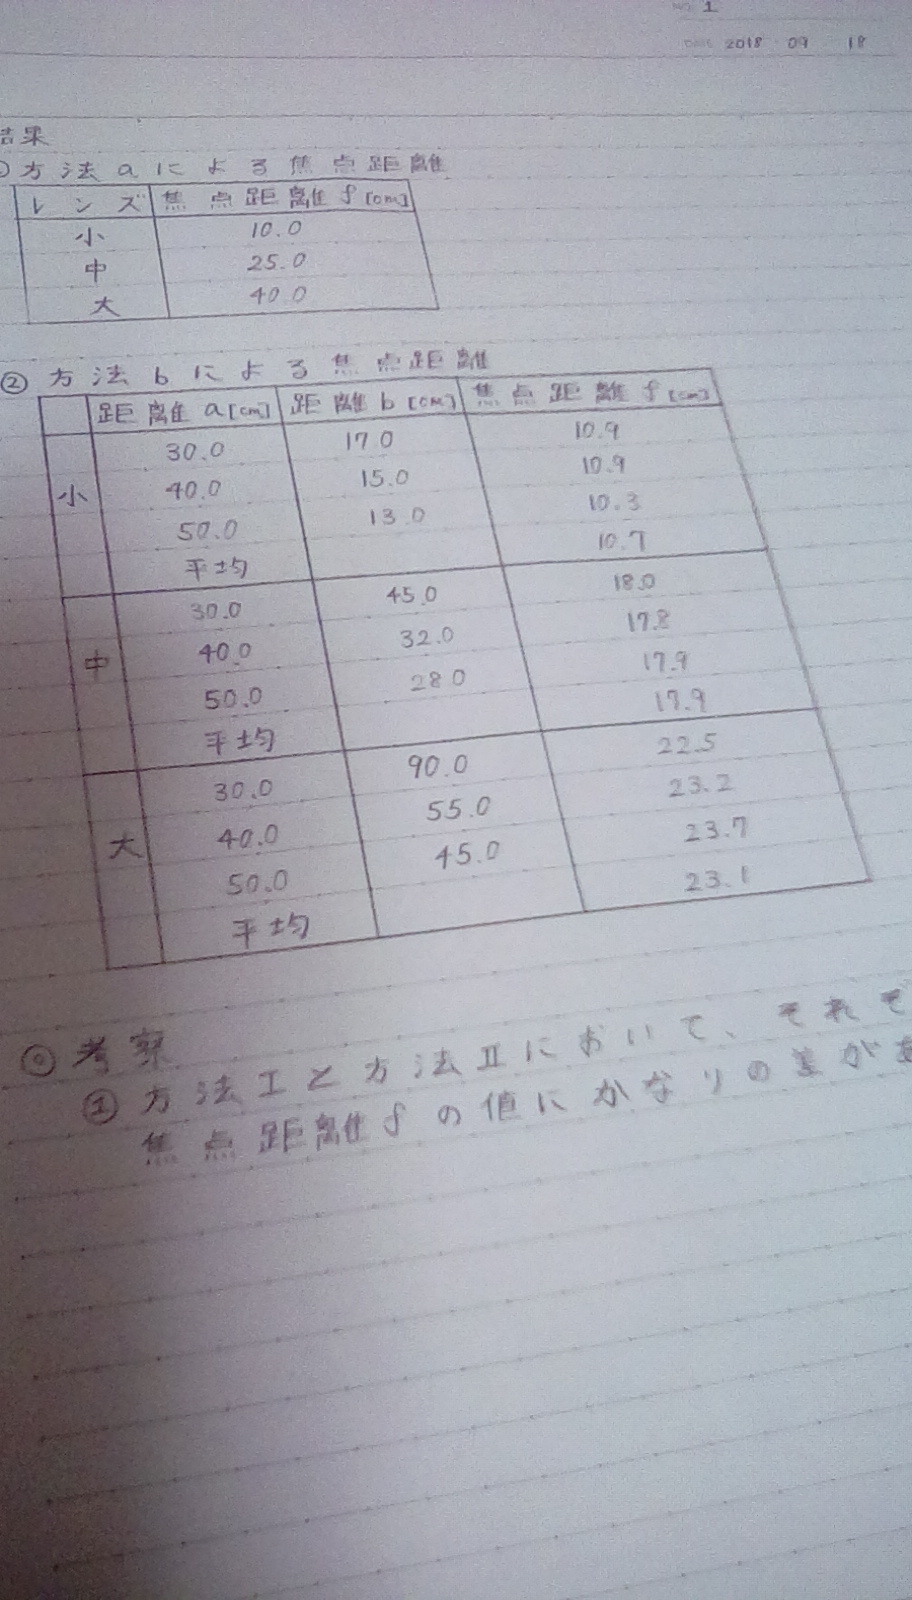 NO. 1
DATE 2018 09 18
結果
方法aによる焦点距離
レンズ 焦点距離f[cm]
小 10.0
中 25.0
大 40.0
② 方法bによる焦点距離
距離a[cm] 距離b[cm] 焦点距離f[cm]
小
30.0 17.0 10.9
40.0 15.0 10.9
50.0 13.0 10.3
平均 10.7
中
30.0 45.0 18.0
40.0 32.0 17.8
50.0 28.0 17.9
平均 17.9
大
30.0 90.0 22.5
40.0 55.0 23.2
50.0 45.0 23.7
平均 23.1
◎考察
① 方法Iと方法IIにおいて、それぞ
焦点距離fの値にかなりの差があ